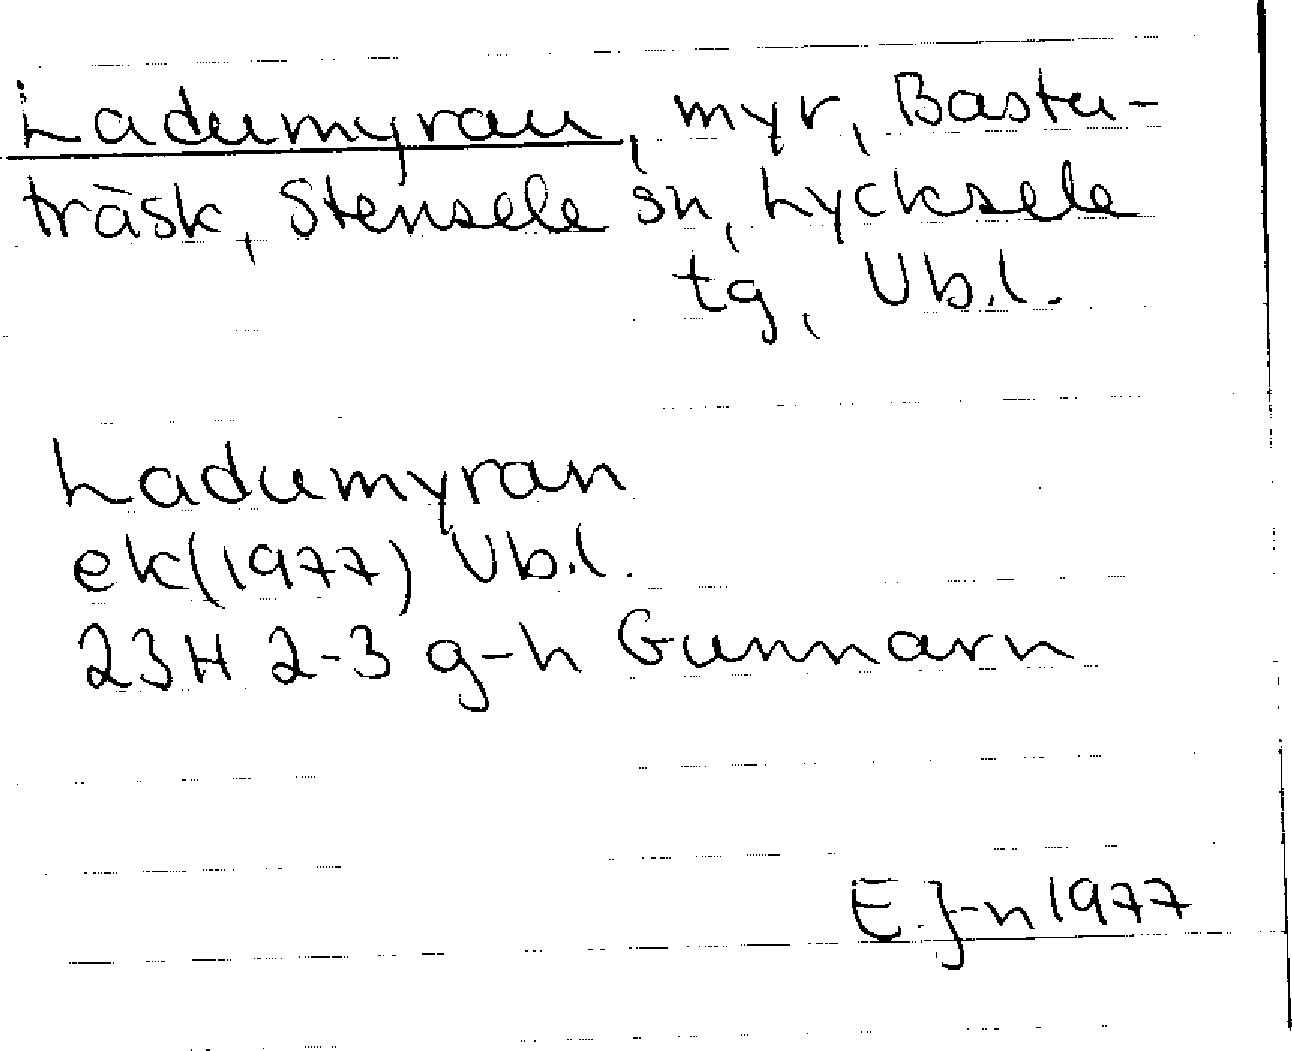 Ladumyran, myr, Bastu-
träsk, Stensele sn, Lycksele
tg, Vb.l.
Ladumyran
ek(1977) Vb.l.
23H 2-3 g-h Gunnarn
E.J-n 1977